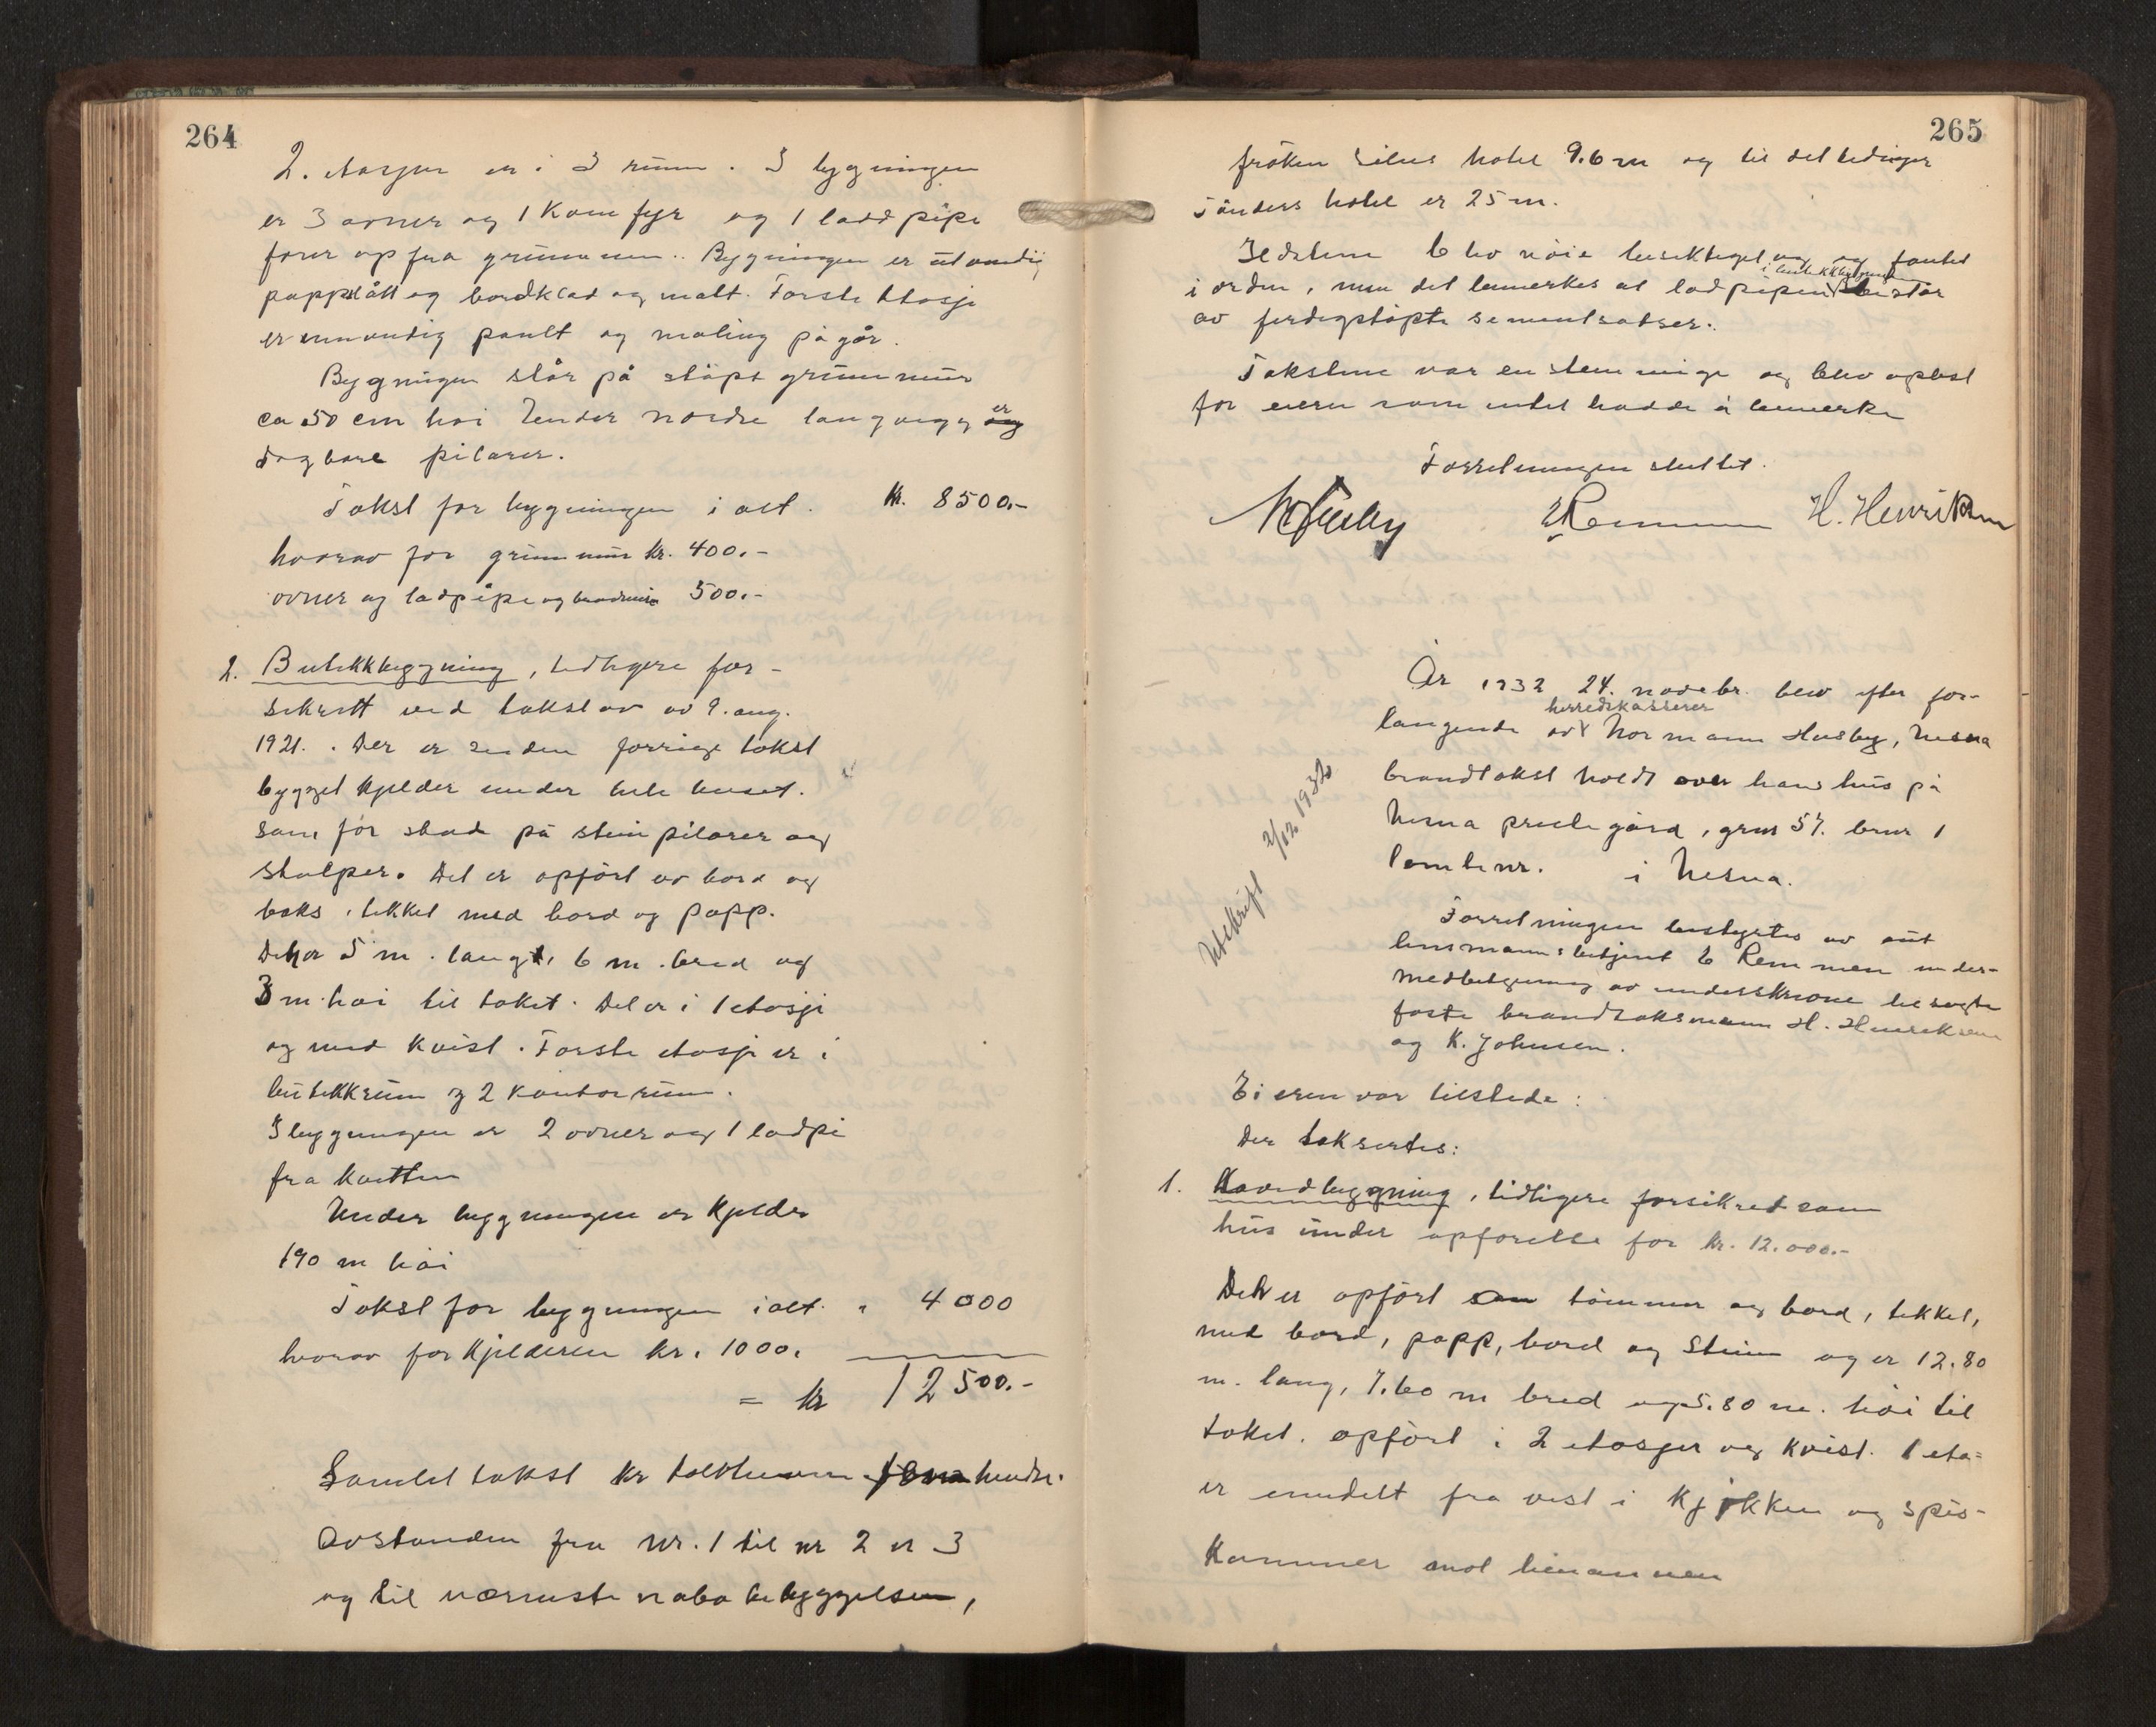 264
2. etasjen er i 3 rum. I bygningen
er 3 ovner og 1 komfyr og 1 ladd pipe
fører op fra grunnmuren. Bygningen er utvendig
pappslått og bordklæd og malt. Første etasje
er innvendig panelt og maling pågår.
Bygningen står på støpt grunnmur
ca 50 cm høi. Under nordre langvegg er
dog bare pilarer.
Takst for bygningen i alt. kr. 8500.-
hvorav for grunnmur kr. 400.-
ovner og ladpipe og brandmur 500.-
2. Butikkbygning, tidligere for-
sikrett ved takst av 9. aug.
1921. Der er siden forrige takst
bygget kjelder under hele huset.
som før stod på steinpilarer og
stolper. Det er opført av bord og
boks, tekket med bord og papp.
Det er 5 m. langt, 6 m. bred og
3 m høi til taket. Det er i 1 etasje
og med kvist. Første etasje er i
butikkrum og 2 kontorrum.
I bygningen er 2 ovner og 1 ladpi
fra kvisten
Under bygningen er kjelder
190 m høi
Takst for bygningen i alt. " 4000
hvorav for kjelderen kr. 1000.
= kr 12500.-
Samlet takst kr tolvtusen fem hundr.
Avstanden fra nr. 1 til nr 2 er 3
og til nærmeste nabobebyggelse,
265
frøken hotel 9.6 m og til det tidligere
hotel er 25 m.
Ildstene blev nøie besiktiget og og funnet
i butikkbygningen
i orden, men det bemerkes at ladpipen består
av ferdigstøpte sementsatser.
Takstene var enstemmige og blev oplest
for eieren som intet hadde å bemerke
Forretningen sluttet.
N Husby E Remmen H. Henriksen
År 1932 24. novebr. blev efter for-
herredskasserer
langende av Normann Husby, Nesna
brandtakst holdt over hans hus på
Nesna prestegård, grnr 57. brnr 1
tomtenr. i Nesna.
Utskrift 2/12 1932
Forretningen bestyrtes av aut
lensmannsbetjent E Remmen under
medbetjening av underskrevne beskikkede
faste brandtaksmenn H. Henriksen
og K. Johnsen.
Eieren var tilstede:
Der taksertes:
1. Hovedbygning, tidligere forsikret som
hus under opførelse for kr. 12.000.-
Det er opført av tømmer og bord, tekket,
med bord, papp, bord og Stein og er 12.80
m. lang, 7.60 m bred og 5.80 m. høi til
taket. opført i 2 etasjer og kvist. 1 eta=
er inndelt fra vest i kjøkken og spis-
kammer mot